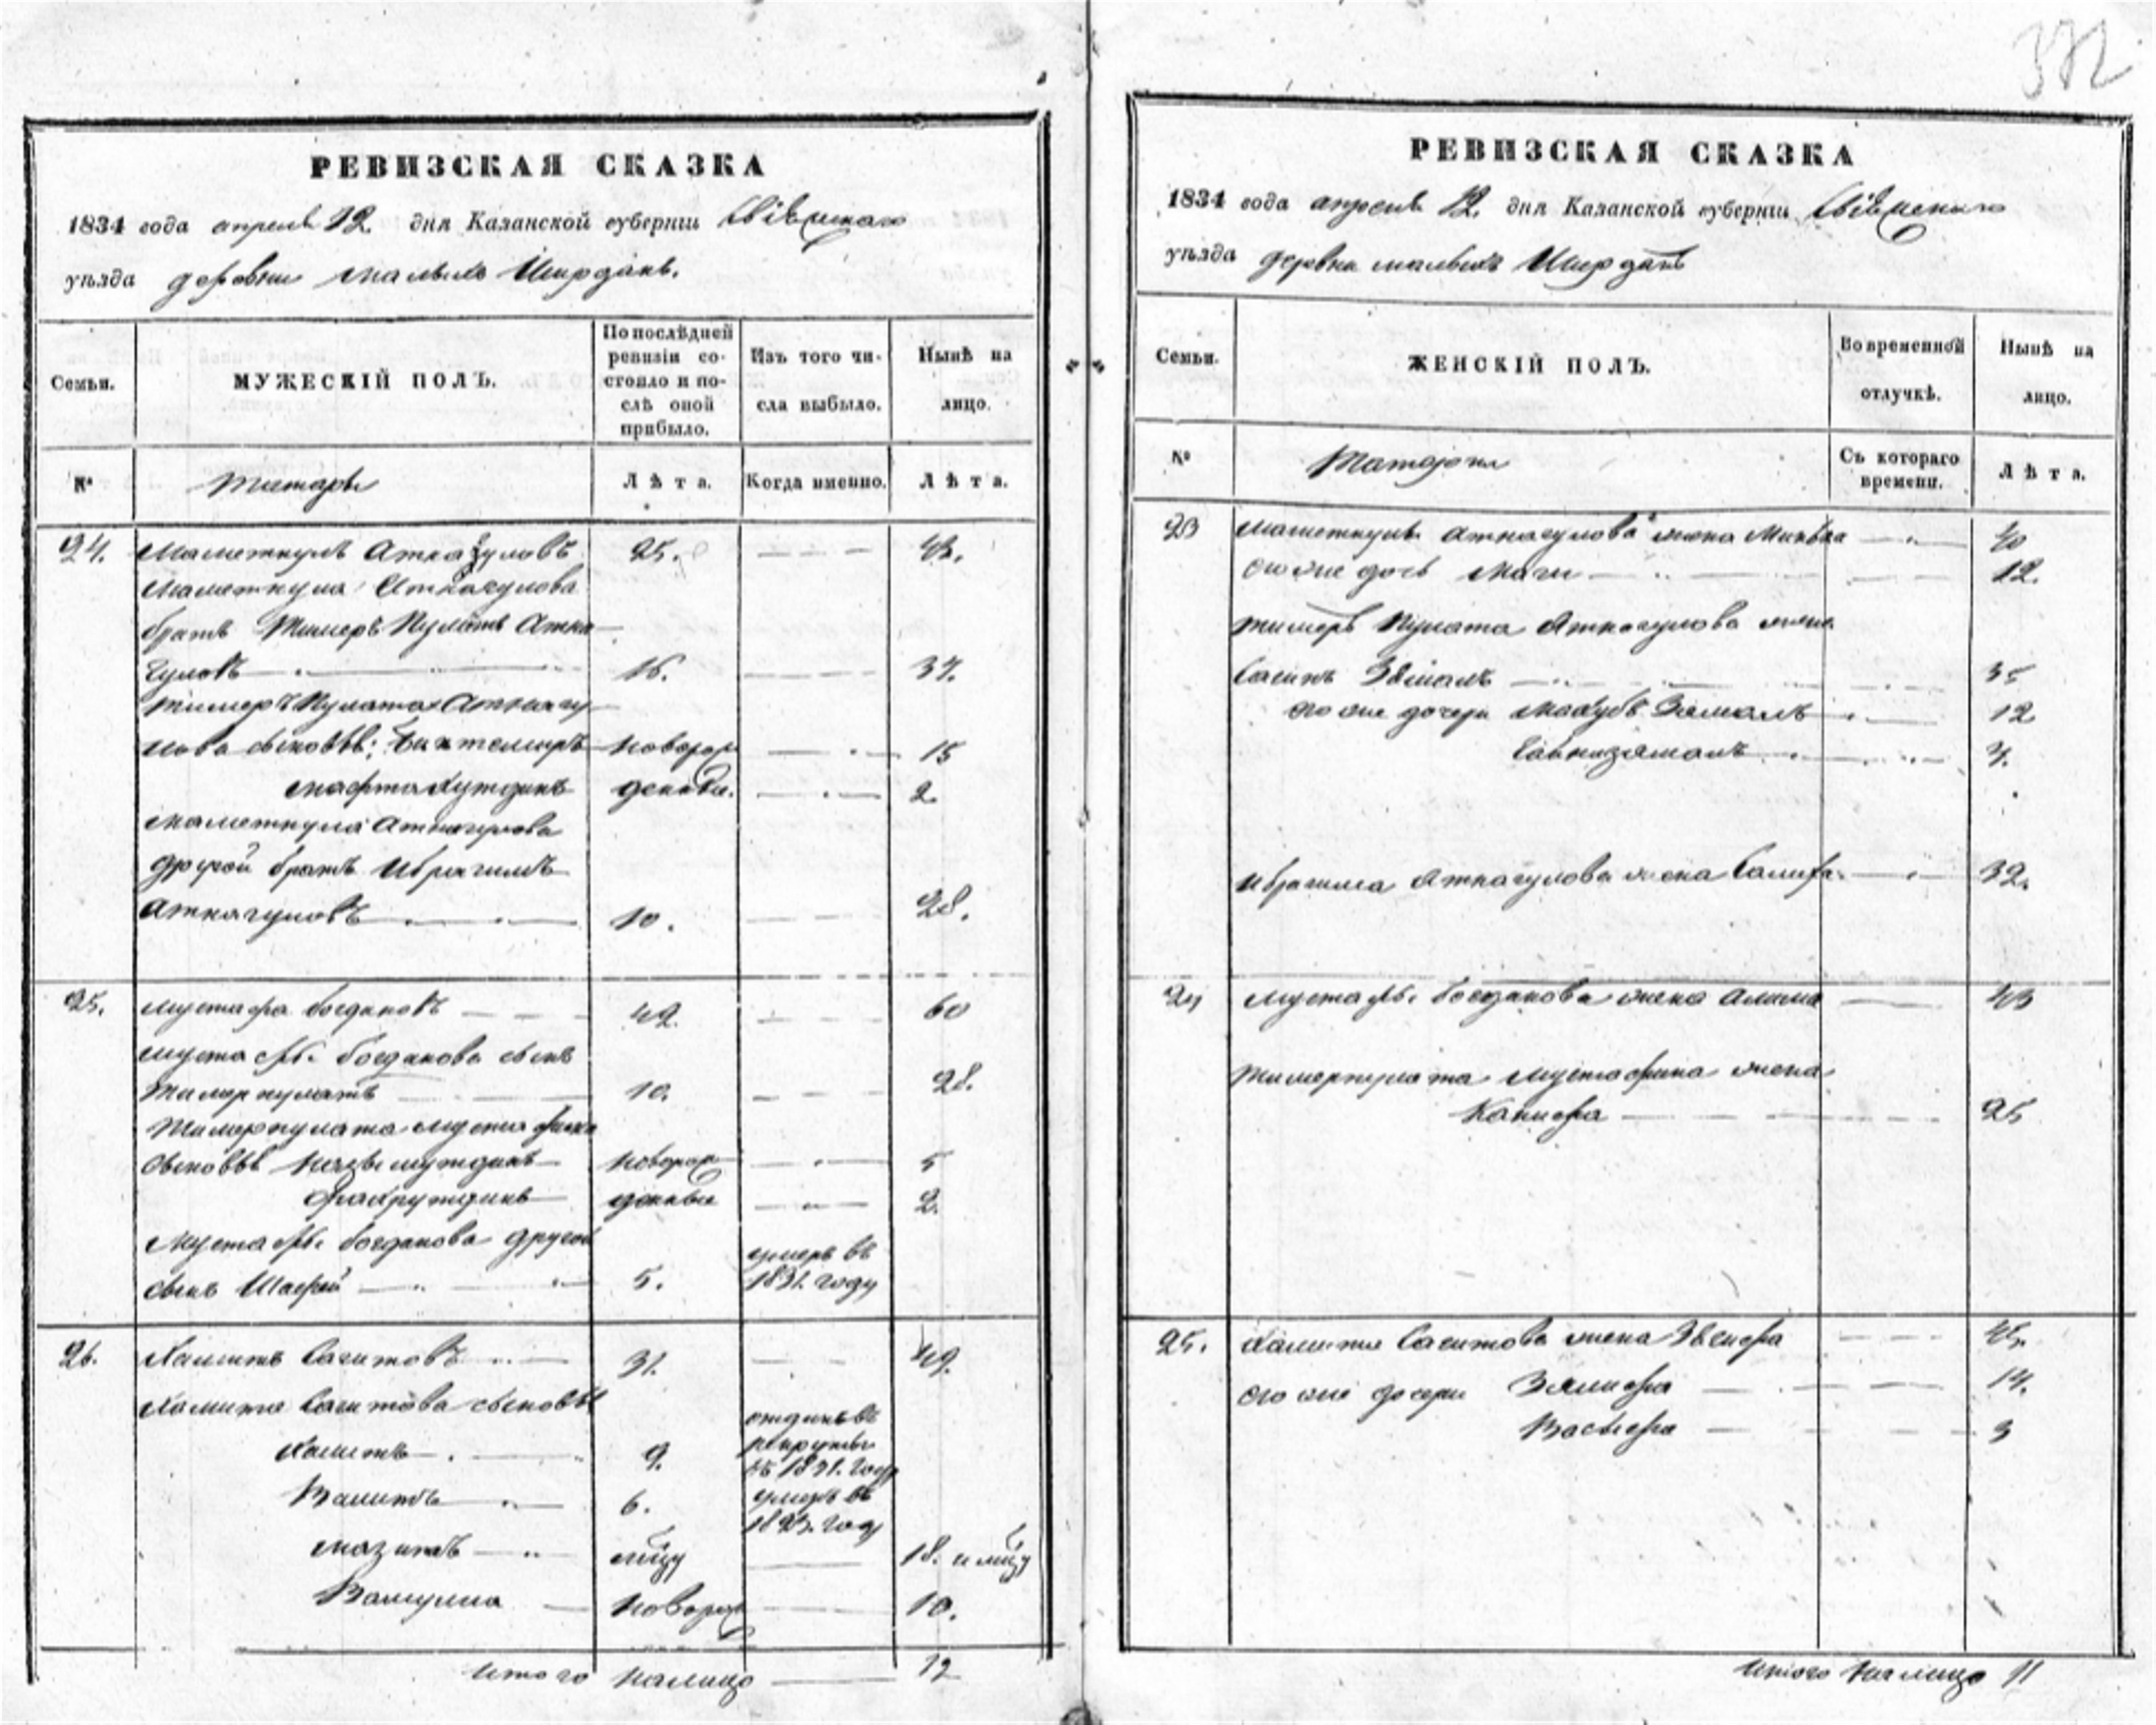 372
РЕВИЗСКАЯ СКАЗКА
1834 года апреля 12 дня Казанской губерніи Свіяжскаго
уѣзда деревни малыхъ Ширданъ.
Семьи.
МУЖЕСКІЙ ПОЛЪ.
По послѣдней
ревизіи со-
стояло и по-
слѣ оной
прибыло.
Изъ того чи-
сла выбыло.
Нынѣ на
лицо.
№
татары
Лѣта.
Когда именно.
Лѣта.
24. Маметкулъ Аткагуловъ 25. 43.
Маметкула Аткагулова
братъ Тимеръ Пулатъ Атка
гуловъ 16. 34.
Тимеръ Пулата Аткагу
лова сыновья: Биктемиръ новорож 15
Мафтахутдинъ денные. 2
Маметкула Аткагулова
другой братъ Ибрагимъ
Аткагуловъ 10. 28.
25. Мустафа Богдановъ 42. 60
Мустафы Богданова сынъ
Тимерпулатъ 10. 28.
Тимерпулата Мустафина
сыновья новорож 5
Фахрутдинъ денные 2.
Мустафы Богданова другой
умеръ въ
сынъ Шафей 5. 1831. году
26. Хамитъ Сагитовъ 31. 49.
Хамита Сагитова сыновья
отданъ въ
рекруты
Халитъ 9. въ 1831. году
умеръ въ
Валитъ 6. году
Мазитъ 18.
Вамулла новорож 10.
Итого налицо 12
РЕВИЗСКАЯ СКАЗКА
1834 года апреля 12. дня Казанской губерніи Свіяжскаго
уѣзда деревни малыхъ Ширданъ
Семьи.
ЖЕНСКІЙ ПОЛЪ.
Во временной
отлучкѣ.
Нынѣ на
лицо.
№
Татарки
Съ котораго
времени.
Лѣта.
23 Маметкула Аткагулова жена 40
его же дочь Маги 12.
Тимеръ Пулата Аткагулова жена
35
его же дочери Махубъ Замалъ 12
4.
Ибрагима Аткагулова жена Салифа 32.
24 Мустафы Богданова жена Алима 43
Тимерпулата Мустафина жена
Канифа 25
25. Хамита Сагитова жена 45.
его же дочери Залифа 14.
Васифа 3
Итого налицо 11